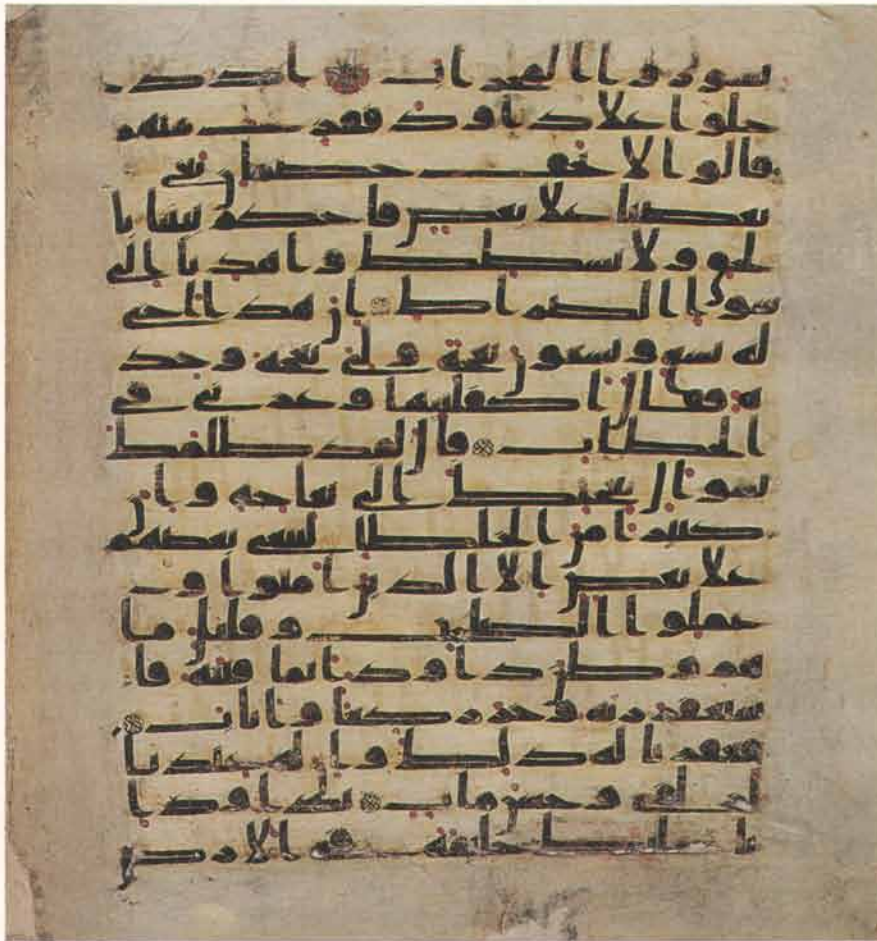 سوروا المحراب اذ د
خلوا علا داود ففزع منهم
قالوا لا تخف خصمان بغى
بعضنا علا بعض فاحكم بيننا با
لحق ولا تشطط واهدنا الى
سوا الصراط ان هذا اخى
له تسع وتسعون نعجة ولى نعجة وحد
ة فقال اكفلنيها وعزنى فى
الخطاب قال لقد ظلمك ب
سوال نعجتك الى نعاجه وان
كثيرا من الخلطا ليبغى بعضهم
علا بعض الا الذين امنوا و
عملوا الصلحت وقليل ما
هم وظن داود انما فتنه فا
ستغفر ربه وخر ركعا واناب
فغفرنا له ذلك وان له عندنا
لزلفى وحسن ماب يداود ا
نا جعلنك خليفة فى الارض